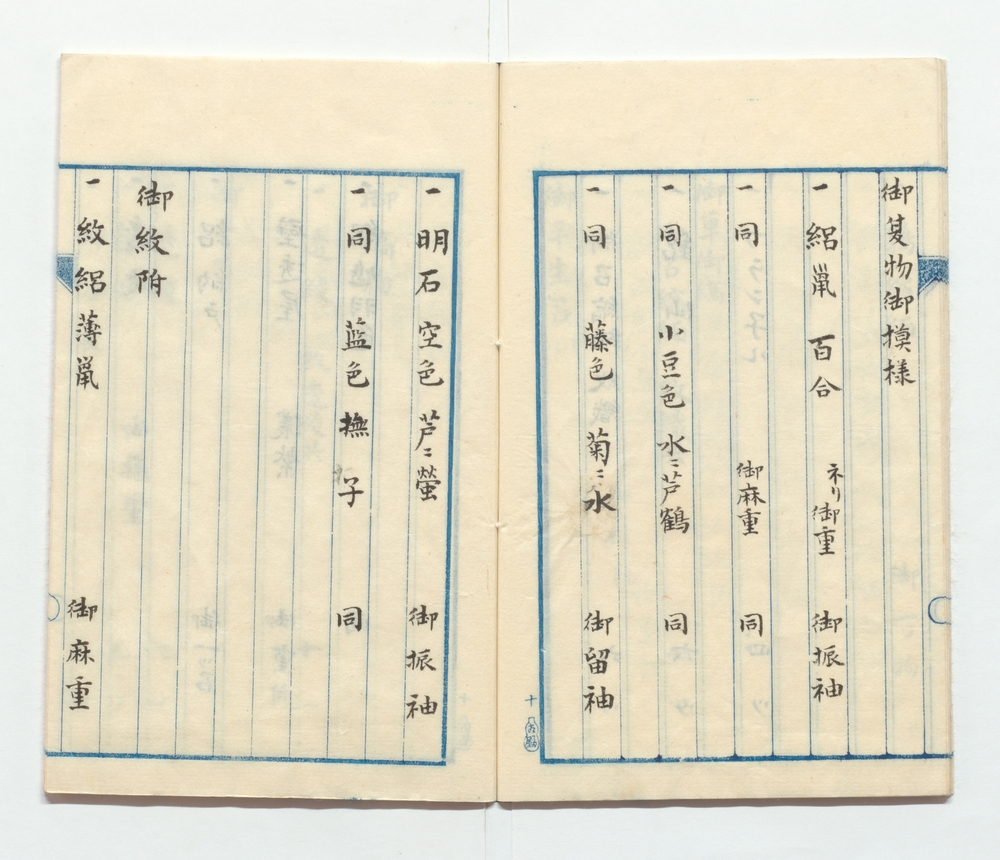 御夏物御摸様
一 絽巤 百合 ネリ御重 御振袖
一 同 御麻重 同
一 同 小豆色 水ニ芦鶴 同
一 同 藤色 菊ニ水 御留袖
十
一 明石 空色 芦ニ螢 御振袖
一 同 藍色 撫子 同
御紋附
一 紋絽 薄巤 御麻重